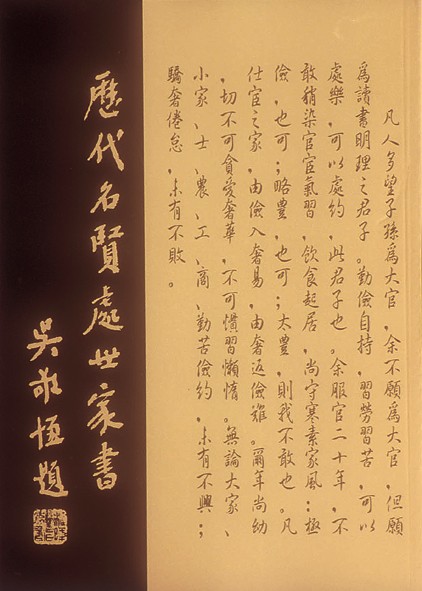 凡人多望子孫爲大官，余不願爲大官，但願
爲讀書明理之君子。勤儉自持，習勞習苦，可以
處樂，可以處約，此君子也。余服官二十年，不
敢稍染官宦氣習，飲食起居，尚守寒素家風：極
儉，也可；略豐，也可；太豐，則我不敢也。凡
仕宦之家，由儉入奢易，由奢返儉難。爾年尚幼
，切不可貪愛奢華，不可慣習懶惰。無論大家、
小家、士、農、工、商，勤苦儉約，未有不興；
驕奢倦怠，未有不敗。
歷代名賢處世家書
吳敬恆題